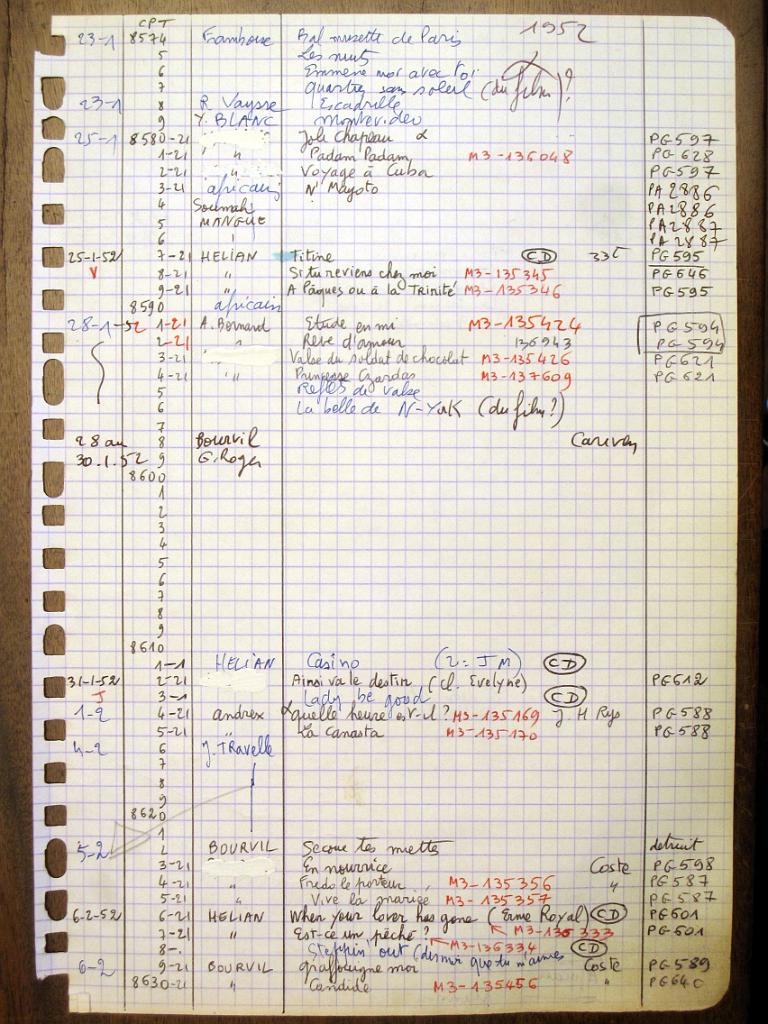 CPT 1952
23-1 8574 Framboise Bal musette de Paris
5 Les nuits
6 Emmène moi avec toi
7 quartier sans soleil (du film)?
23-1 8 R. Vaysse Escadrille
9 Y. BLANC Montevideo
25-1 8580-21 Joli Chapeau PG597
1-21 " Padam Padam M3-136048 PG628
2-21 " Voyage à Cuba PG597
3-21 africain N' Mayoto PA2886
4 Soumah PA2886
5 MANGUE PA2887
6 " PA2887
25-1-52 7-21 HELIAN Titine CD 33t PG595
V 8-21 " Si tu reviens chez moi M3-135345 PG646
9-21 " A Pâques ou à la Trinité M3-135346 PG595
8590 africain
28-1-52 1-21 A. Bernard Etude en mi M3-135424 PG594
2-21 " Rêve d'amour 136943 PG594
3-21 Valse du soldat de chocolat M3-135426 PG621
4-21 " Princesse Czardas M3-137609 PG621
5 Reflets de valse
6 La belle de N-York (du film?)
7
28 au 8 Bourvil
30.1.52 9 G. Roger
8600
1
2
3
4
5
6
7
8
9
8610
1-1 HELIAN Casino (2 = JM) CD
31-1-52 2-21 Ainsi va le destin (cl. Evelyne) PG612
J 3-1 Lady be good CD
1-2 4-21 andrex quelle heure est-il? M3-135169 J H Rys PG588
5-21 " La Canasta M3-135170 PG588
4-2 6 J. TRavelle
7
8
9
8620
1
5-2 2 BOURVIL Secoue tes miettes detruit
3-21 En nourrice Coste PG598
4-21 " Fredo le porteur M3-135356 " PG587
5-21 " Vive la mariée M3-135357 PG587
6-2-52 6-21 HELIAN When your lover has gone (Erme Royal) CD PG601
7-21 " Est-ce un pêché? M3-136333 PG601
8-. Steppin out M3-136334 (dis moi que tu m'aimes CD
6-2 9-21 BOURVIL Graffouigne moi Coste PG589
8630-21 " Candide M3-135456 " PG640